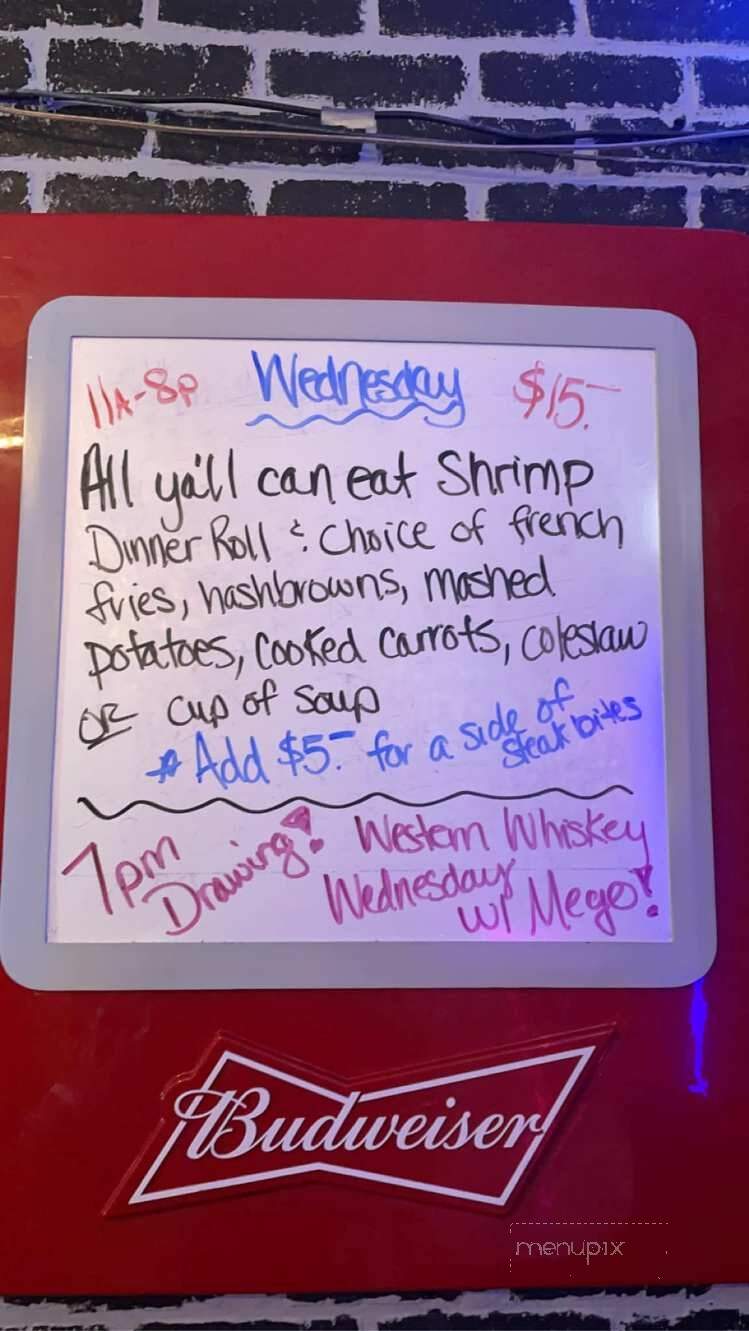 11A-8P Wednesday $15.-
All ya'll can eat Shrimp
Dinner Roll & choice of french
fries, hashbrowns, mashed
potatoes, cooked carrots, coleslaw
OR cup of soup
* Add $5.- for a side of
steak bites
7pm
Drawing! Western Whiskey
Wednesday
w/ Mego!
Budweiser
menupix